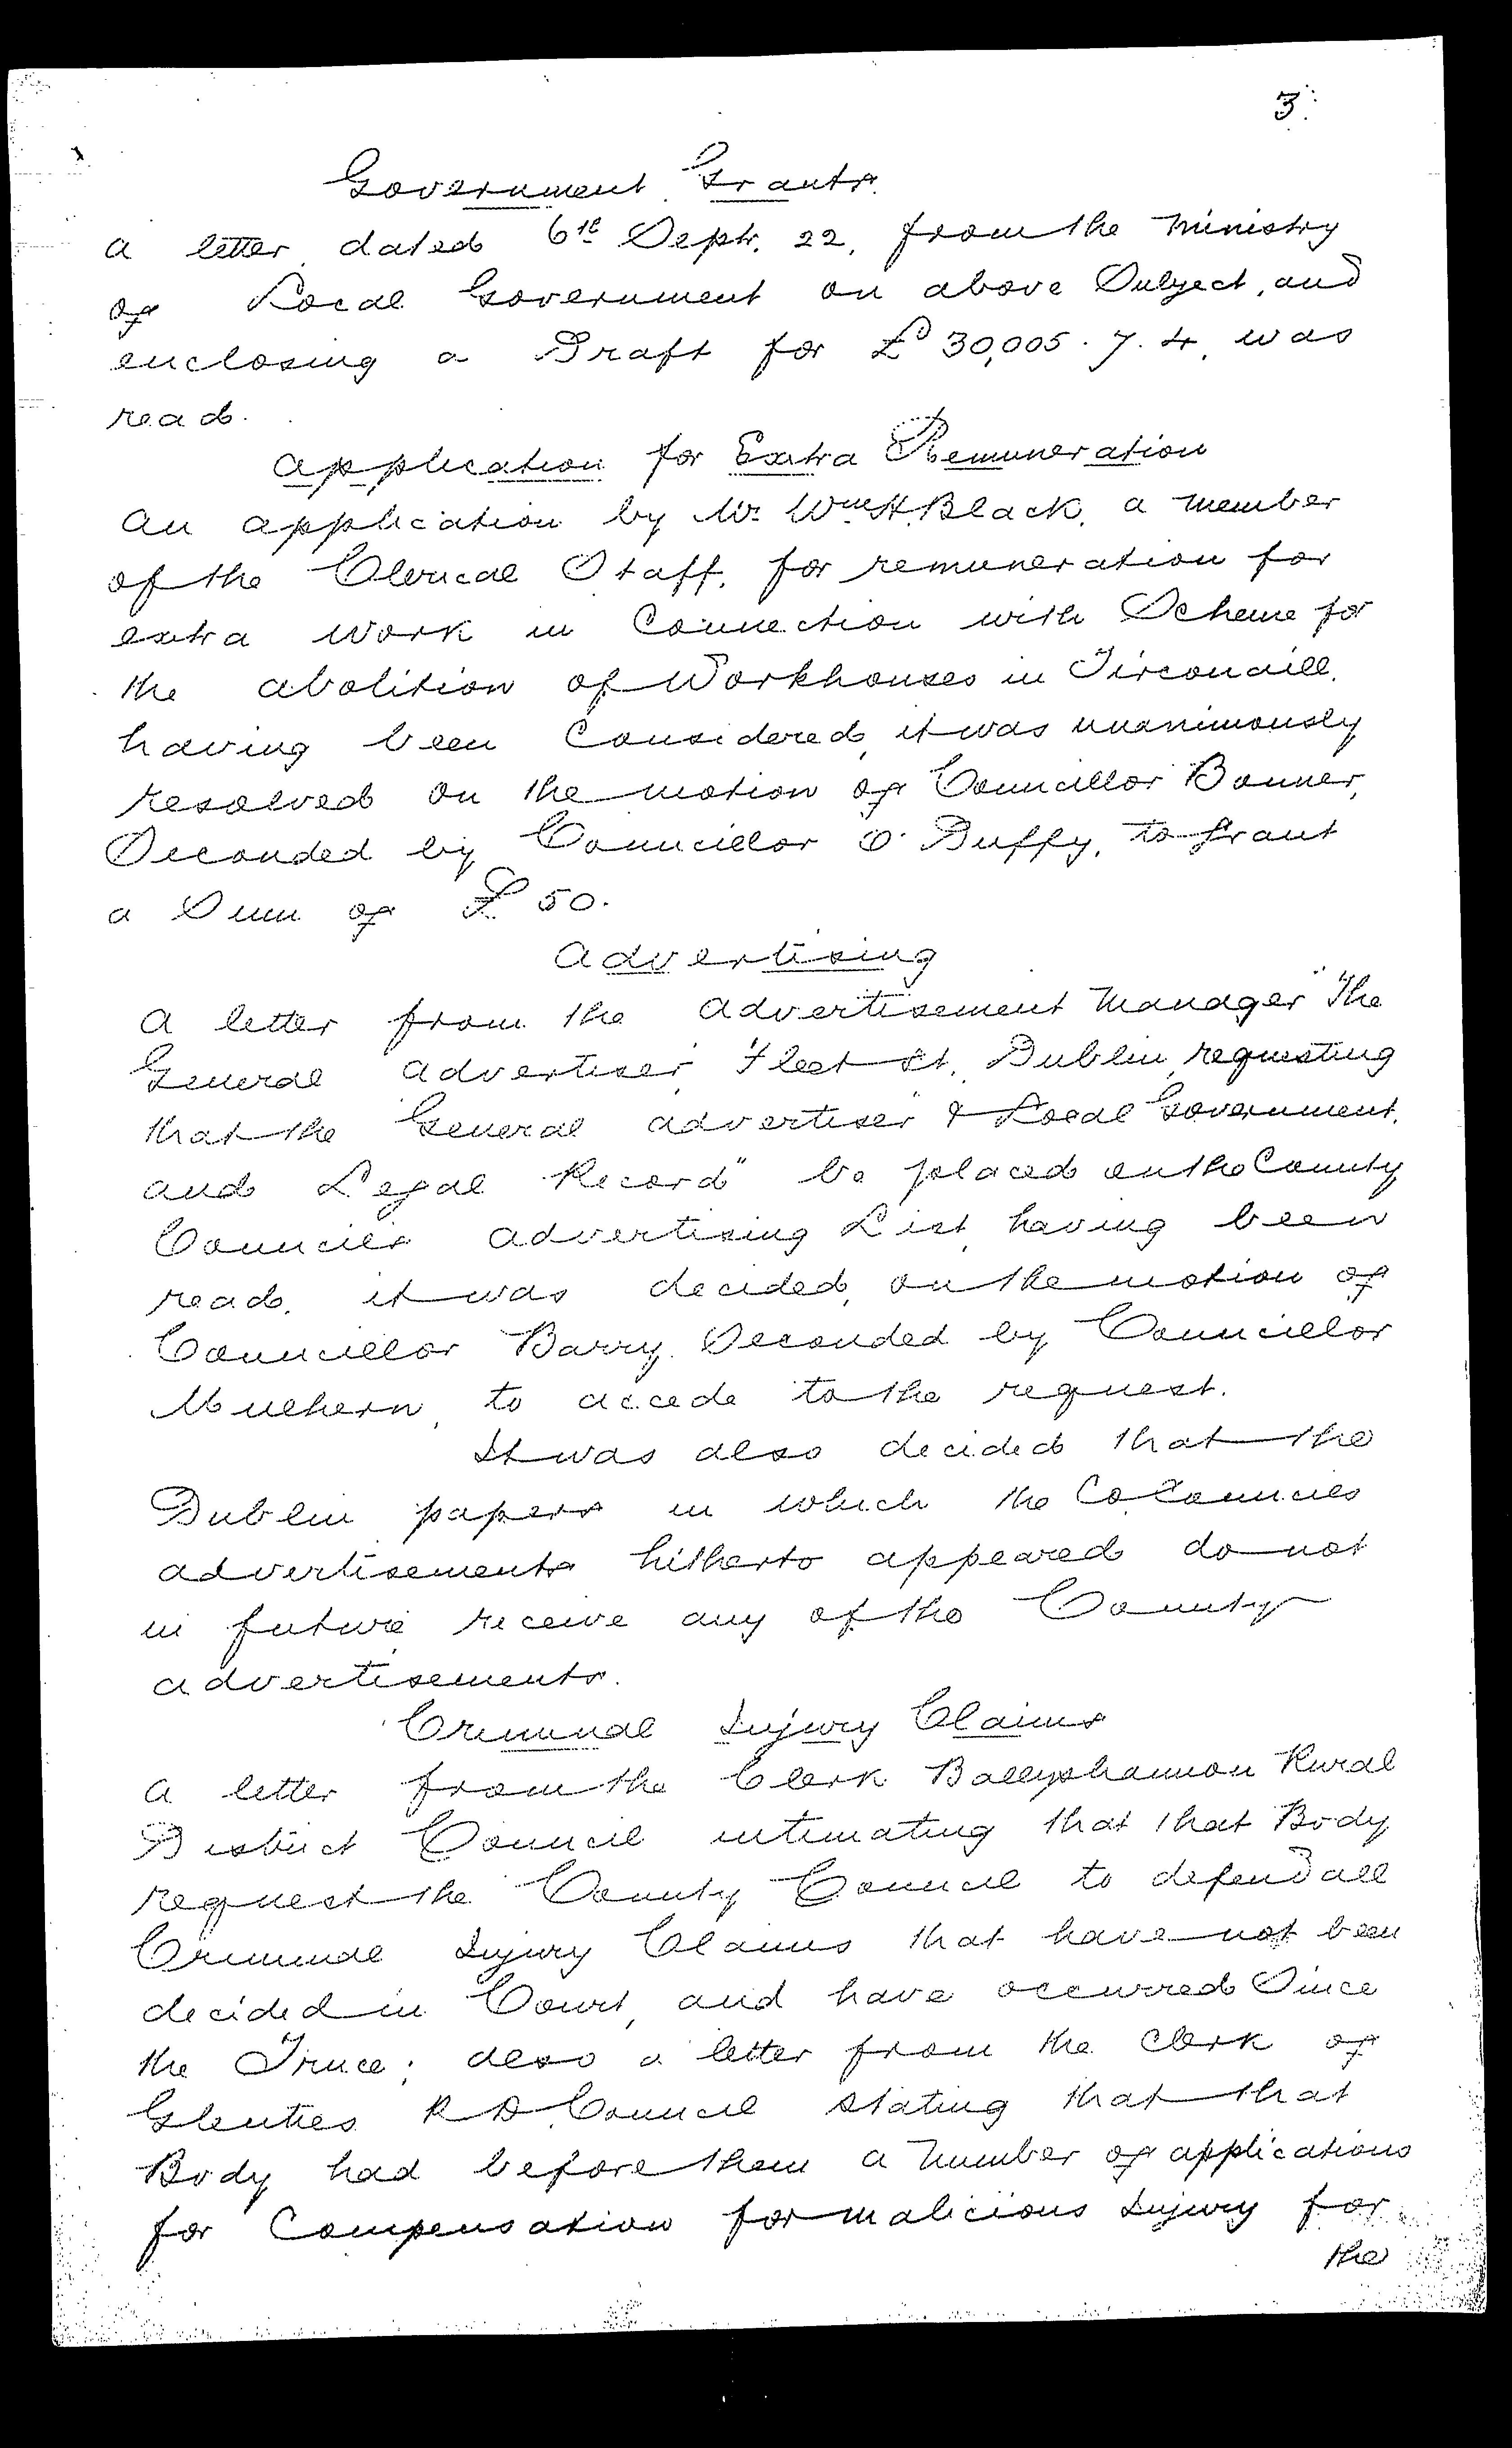 3.
Government Grants.
A letter dated 6th Septr. 22, from the Ministry
of Local Government on above Subject, and
enclosing a Draft for £30,005.7.4, was
read.
Application for Extra Remuneration
An application by Mr. Wm H. Black, a member
of the Clerical Staff, for remuneration for
extra work in Connection with Scheme for
the abolition of Workhouses in Tirconaill,
having been Considered, it was unanimously
resolved on the motion of Councillor Bonner,
Seconded by Councillor O'Duffy, to grant
a Sum of £50.
Advertising
A letter from the Advertisement Manager "The
General Advertiser, Fleet St. Dublin, requesting
that the "General Advertiser & Local Government
and Legal Record" be placed on the County
Councils Advertising List, having been
read, it was decided, on the motion of
Councillor Barry, Seconded by Councillor
Mulhern, to accede to the request.
It was also decided that the
Dublin papers in which the Co Councils
advertisements hitherto appeared do not
in future receive any of the County
advertisements.
Criminal Injury Claims
A letter from the Clerk Ballyshannon Rural
District Council intimating that that Body
request the County Council to defend all
Criminal Injury Claims that have not been
decided in Court, and have occurred Since
the Truce; also a letter from the Clerk of
Glenties R D Council stating that that
Body had before them a number of applications
for Compensation for malicious Injury for
the